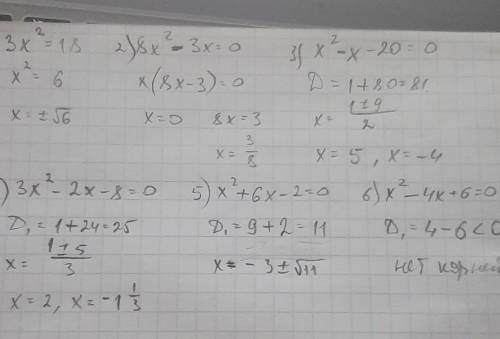 3x² = 18
x² = 6
x = ±√6
2) 8x² - 3x = 0
x(8x - 3) = 0
x = 0 8x = 3
x = 3/8
3) x² - x - 20 = 0
D = 1 + 80 = 81
x = (1 ± 9)/2
x = 5, x = -4
) 3x² - 2x - 8 = 0
D₁ = 1 + 24 = 25
x = (1 ± 5)/3
x = 2, x = -1 1/3
5) x² + 6x - 2 = 0
D₁ = 9 + 2 = 11
x = -3 ± √11
6) x² - 4x + 6 = 0
D₁ = 4 - 6 < 0
нет корней